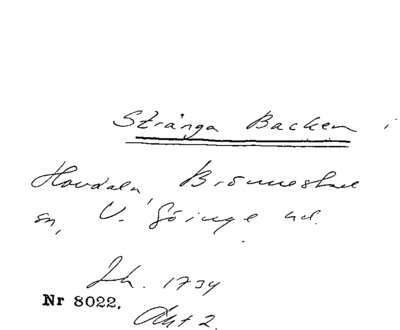 Stränga Backen i
Hovdala, Brönnestad
sn, V. Göinge hd.
Jh. 1734
Nr 8022.
Akt 2.